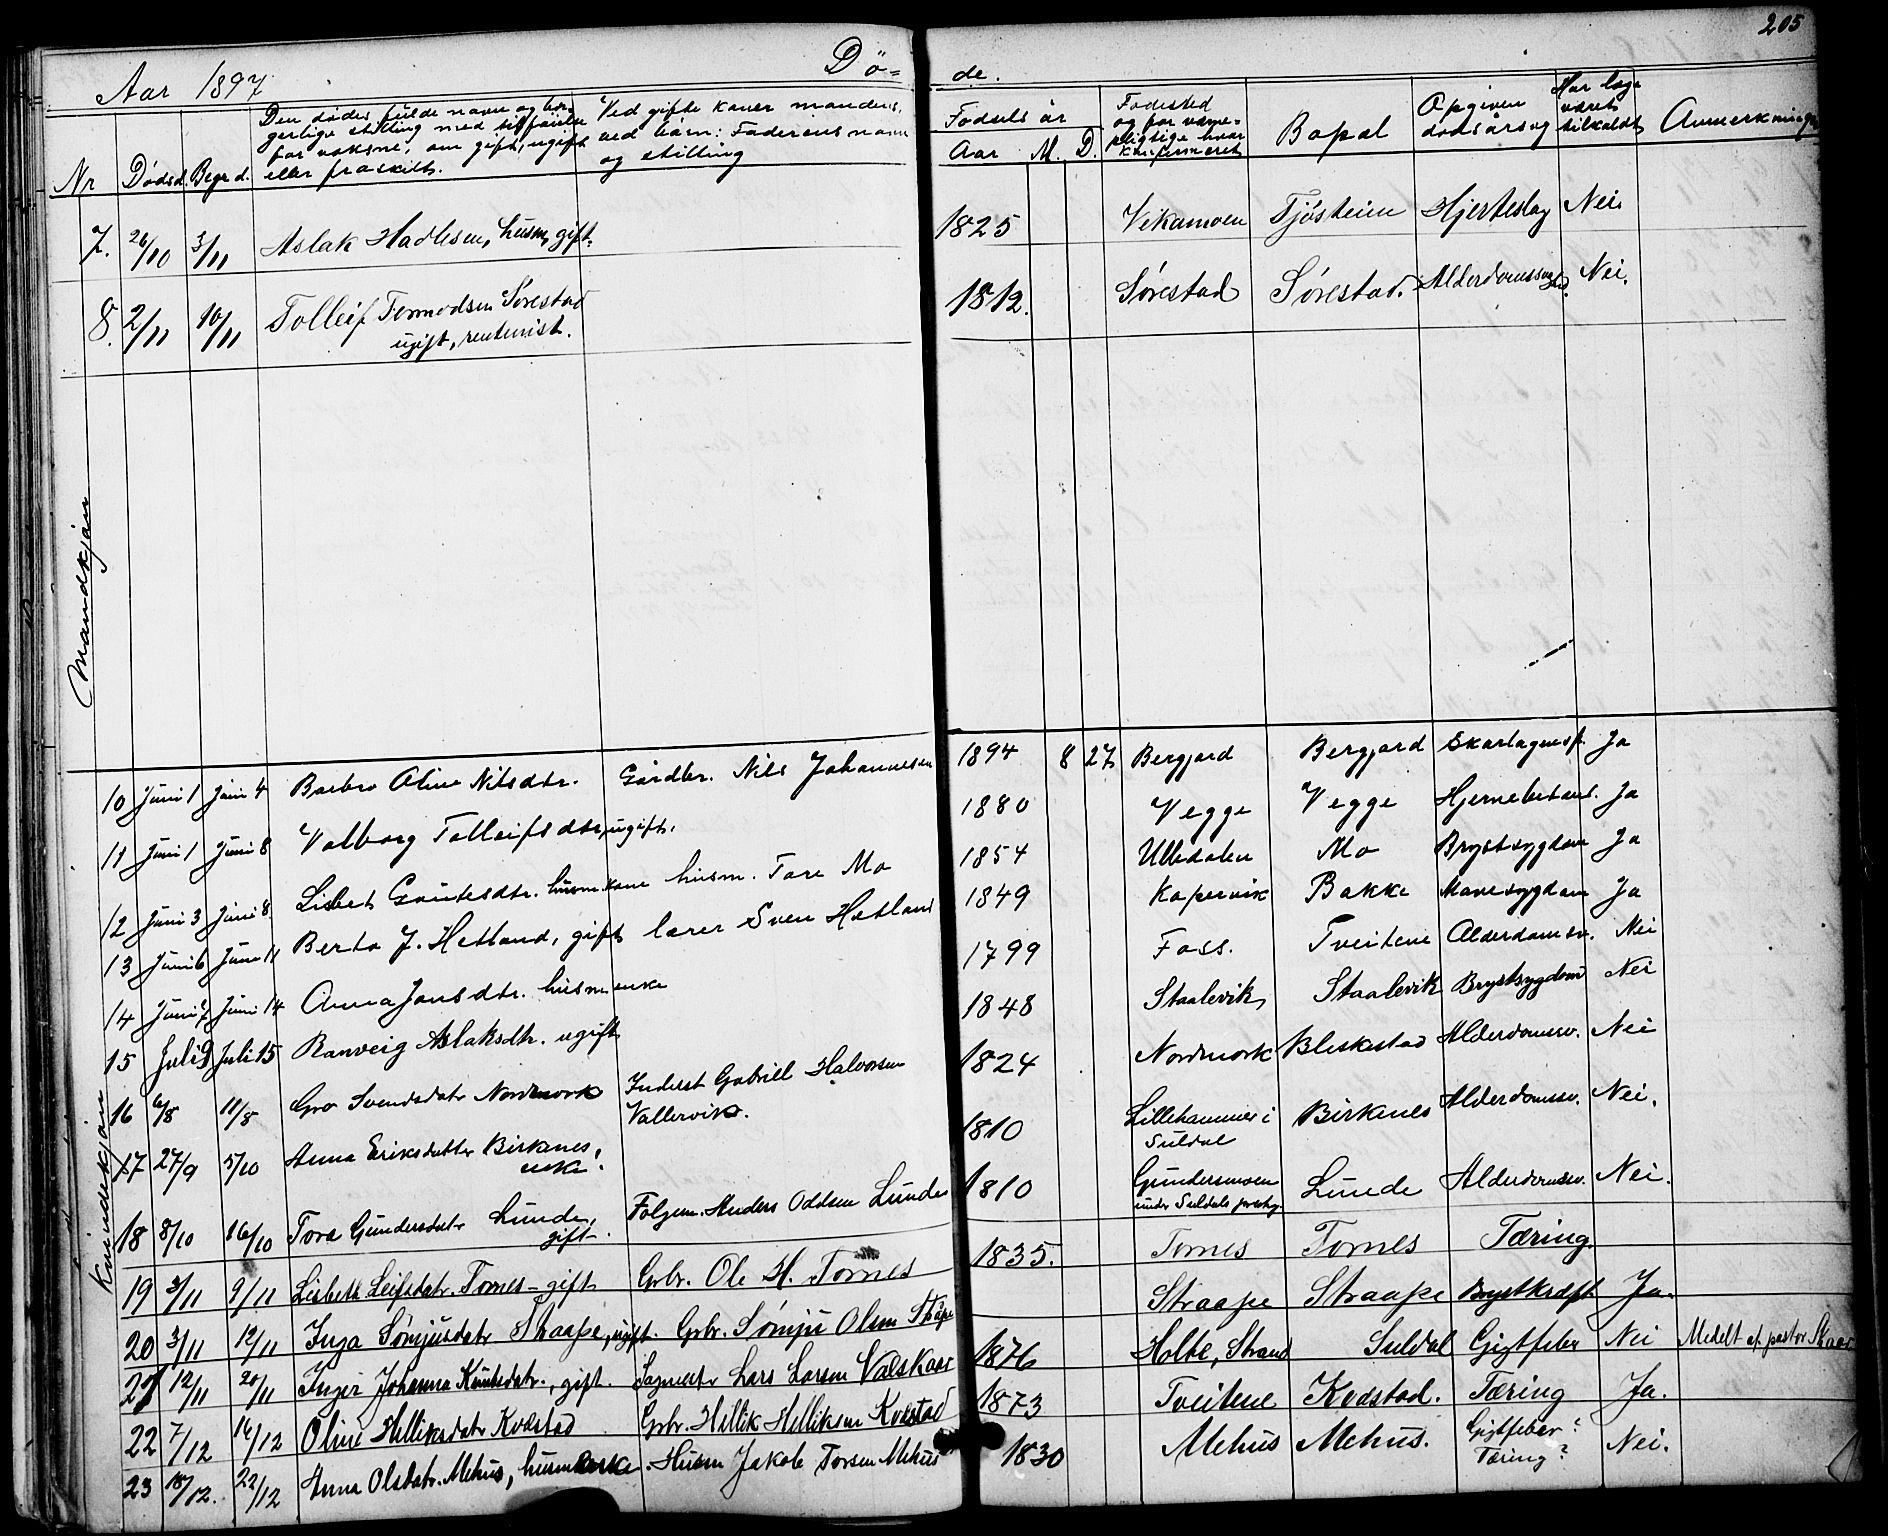 205
Aar 1897 Dø= de.
Nr Dødsd. Begr d. Den dødes fulde navn og borgerlige stilling med tilføielse for voksne, om gift, ugift eller fraskilt. Ved gifte koner mandens, ved børn: Faderens navn og stilling Fødsels år Aar M. D. Fødested og for værnepligtige hvor konfirmeret Bopæl Opgiven dødsårsag Har læge været tilkaldt Anmerkninger
Mandkjøn
7. 26/10 3/11 Aslak Hadlesen, husm, gift. 1825 Vikamoen Tjøsteim Hjerteslag Nei.
8. 2/11 10/11 Tolleif Tormodsen Sørestad 1812. Sørestad Sørestad. Alderdomssvaghed. Nei.
ugift, rentenist.
Kvindekjøn
10 Juni 1 Juni 4 Barbro Oline Nilsdtr. Gårdbr. Nils Johannesen 1894 8 27 Bergjord Bergjord Skarlagensf. Ja
11 Juni 1 Juni 8 Valborg Tolleifsdtr, ugift. 1880 Vegge Vegge Hjernebetænd. Ja
12 Juni 3 Juni 8 Lisbet Gautesdtr. husm. kone husm. Tore Mo 1854 Ulledalen Mo Brystsygdom Ja
13 Juni 6 Juni 11 Berta J. Hetland, gift lærer Sven Hetland 1849 Kopervik Bakke Mavesygdom Ja
14 Juni 7 Juni 14 Anna Jonsdtr. husm enke 1799 Foss. Tveitene Alderdomsv. Nei
15 Juli 9 Juli 15 Ranveig Aslaksdtr. ugift 1848 Staalevik Staalevik Brystsygdom Nei
16 6/8 11/8 Gro Svendsdatr Nordmork Inderst Gabriel Halvorsen 1824 Nordmork Bleskestad Alderdomsv. Nei
Vallervik.
17 27/9 5/10 Anna Eriksdatter Birkenes, 1810 Lillehammer i Birkenes Alderdomssv. Nei.
enke. Suldal
18 8/10 16/10 Tora Gundersdatr Lunde, Følgem. Anders Oddsen Lunde 1810 Gundersmoen Lunde Alderdomssv. Nei.
gift. under Suldals prestg.
19 3/11 9/11 Lisbeth Leifsdatr. Tornes - gift Grbr. Ole H. Tornes 1835. Tornes Tornes Tæring.
20 3/11 12/11 Inga Sømjusdatr Straape, ugift. Grbr. Sømju Olsen Stråpe Straape Straape Brystkræft Ja.
21 12/11 20/11 Inger Johanna Knutsdatr., gift. Sagmestr Lars Larsen Valskaar 1876 Holte, Strand Suldal Gigtfeber Nei Medelt af pastor Skaar
22 7/12 14/12 Oline Helliksdatr Kvæstad Grbr. Hellik Helliksen Kvæstad 1873 Tveitene Kvæstad. Tæring Ja.
23 18/12. 22/12 Anna Olsdatr. Mehus, husm enke. Husm Jakob Torsen Mehus 1830 Mehus Mehus. Gigtfeber? Nei.
Tæring?